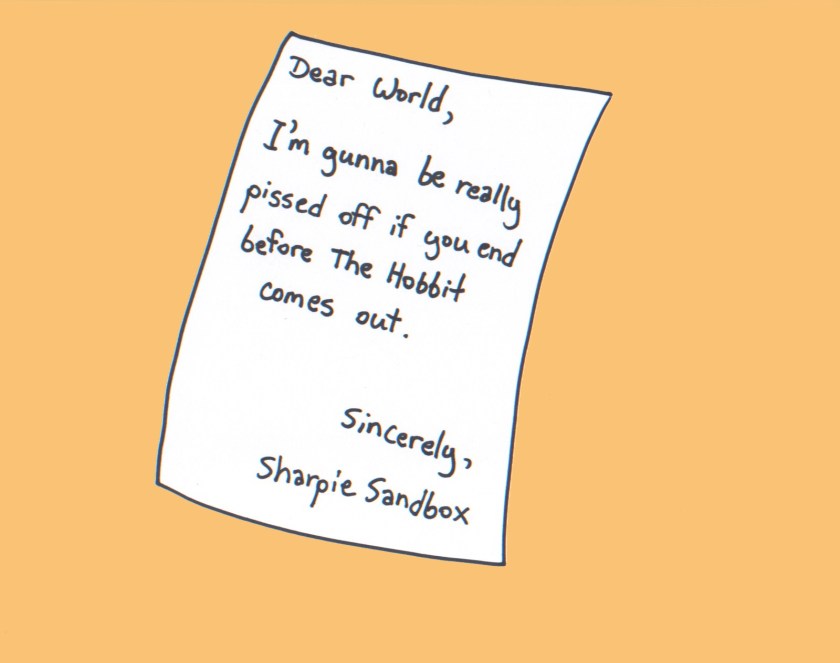 Dear World,
I'm gunna be really
pissed off if you end
before The Hobbit
comes out.
Sincerely,
Sharpie Sandbox